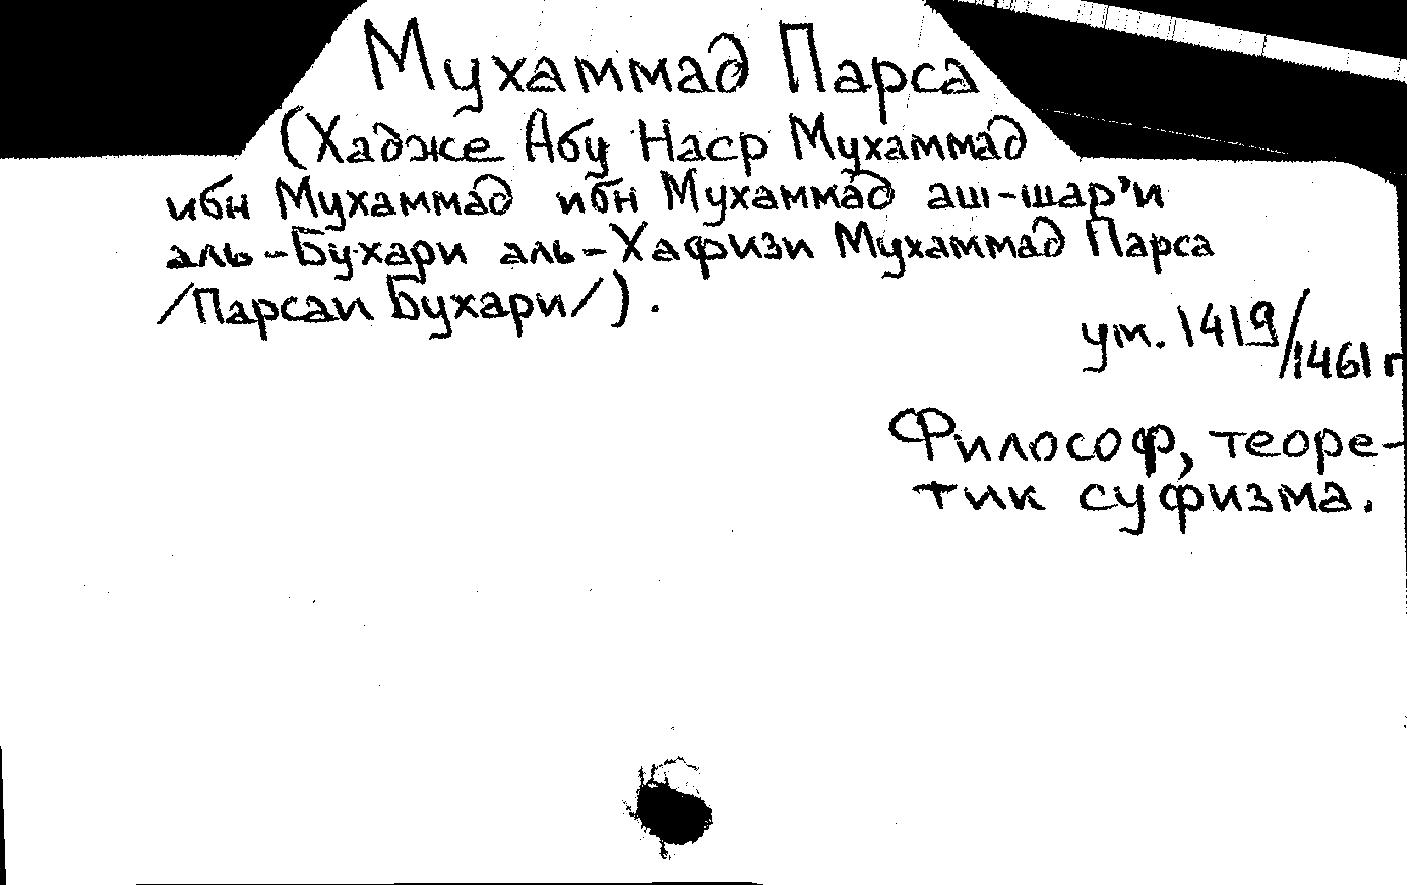 Мухаммад Парса
(Хадже Абу Наср Мухаммад
ибн Мухаммад ибн Мухаммад аш-шар'и
аль-Бухари аль-Хафизи Мухаммад Парса
/Парсаи Бухари/).
ум. 1419/1461 г
Философ, теоре-
тик суфизма.